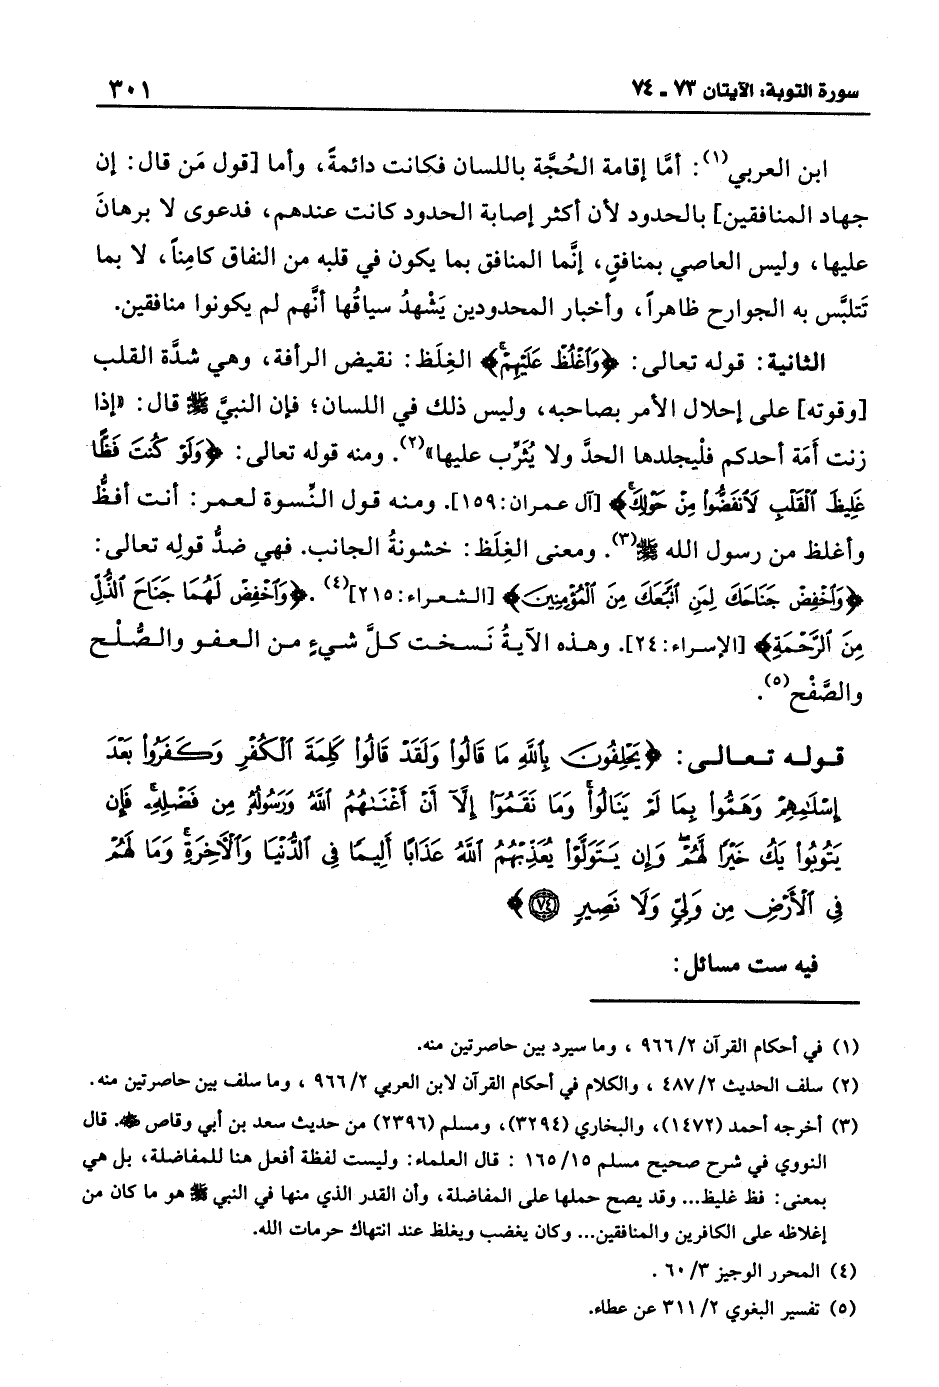 سورة التوبة: الآيتان ٧٣ ـ ٧٤
٣٠١
ابن العربي(١): أمَّا إقامة الحُجَّة باللسان فكانت دائمةً، وأما [قول مَن قال: إن
جهاد المنافقين] بالحدود لأن أكثر إصابة الحدود كانت عندهم، فدعوى لا برهانَ
عليها، وليس العاصي بمنافقٍ، إنَّما المنافق بما يكون في قلبه من النفاق كامِناً، لا بما
تَتلبَّس به الجوارح ظاهراً، وأخبار المحدودين يَشْهدُ سياقُها أنَّهم لم يكونوا منافقين.
الثانية: قوله تعالى: ﴿وَٱغْلُظْ عَلَيْهِمْ﴾ الغِلَظ: نقيض الرأفة، وهي شدَّة القلب
[وقوته] على إحلال الأمر بصاحبه، وليس ذلك في اللسان؛ فإن النبيَّ ﷺ قال: «إذا
زنت أمَة أحدكم فلْيجلدها الحدَّ ولا يُثَرِّب عليها»(٢). ومنه قوله تعالى: ﴿وَلَوْ كُنتَ فَظًّا
غَلِيظَ ٱلْقَلْبِ لَٱنفَضُّوا۟ مِنْ حَوْلِكَ﴾ [آل عمران:١٥٩]. ومنه قول النِّسوة لعمر: أنت أفظُّ
وأغلظ من رسول الله ﷺ(٣). ومعنى الغِلَظ: خشونةُ الجانب. فهي ضدُّ قولِه تعالى:
﴿وَٱخْفِضْ جَنَاحَكَ لِمَنِ ٱتَّبَعَكَ مِنَ ٱلْمُؤْمِنِينَ﴾ [الشعراء:٢١٥](٤). ﴿وَٱخْفِضْ لَهُمَا جَنَاحَ ٱلذُّلِّ
مِنَ ٱلرَّحْمَةِ﴾ [الإسراء:٢٤]. وهذه الآيةُ نَسخت كلَّ شيءٍ من العفو والصُّلْح
والصَّفْح(٥).
قوله تعالى: ﴿يَحْلِفُونَ بِٱللَّهِ مَا قَالُوا۟ وَلَقَدْ قَالُوا۟ كَلِمَةَ ٱلْكُفْرِ وَكَفَرُوا۟ بَعْدَ
إِسْلَٰمِهِمْ وَهَمُّوا۟ بِمَا لَمْ يَنَالُوا۟ۚ وَمَا نَقَمُوٓا۟ إِلَّآ أَنْ أَغْنَىٰهُمُ ٱللَّهُ وَرَسُولُهُۥ مِن فَضْلِهِۦۚ فَإِن
يَتُوبُوا۟ يَكُ خَيْرًا لَّهُمْۖ وَإِن يَتَوَلَّوْا۟ يُعَذِّبْهُمُ ٱللَّهُ عَذَابًا أَلِيمًا فِى ٱلدُّنْيَا وَٱلْـَٔاخِرَةِۚ وَمَا لَهُمْ
فِى ٱلْأَرْضِ مِن وَلِىٍّ وَلَا نَصِيرٍ ٧٤﴾
فيه ست مسائل:
(١) في أحكام القرآن ٢/ ٩٦٦ ، وما سيرد بين حاصرتين منه.
(٢) سلف الحديث ٢/ ٤٨٧ ، والكلام في أحكام القرآن لابن العربي ٢/ ٩٦٦ ، وما سلف بين حاصرتين منه.
(٣) أخرجه أحمد (١٤٧٢)، والبخاري (٣٢٩٤)، ومسلم (٢٣٩٦) من حديث سعد بن أبي وقاص ﷺ. قال
النووي في شرح صحيح مسلم ١٥/ ١٦٥ : قال العلماء: وليست لفظة أفعل هنا للمفاضلة، بل هي
بمعنى: فظ غليظ... وقد يصح حملها على المفاضلة، وأن القدر الذي منها في النبي ﷺ هو ما كان من
إغلاظه على الكافرين والمنافقين... وكان يغضب ويغلظ عند انتهاك حرمات الله.
(٤) المحرر الوجيز ٣/ ٦٠ .
(٥) تفسير البغوي ٢/ ٣١١ عن عطاء.